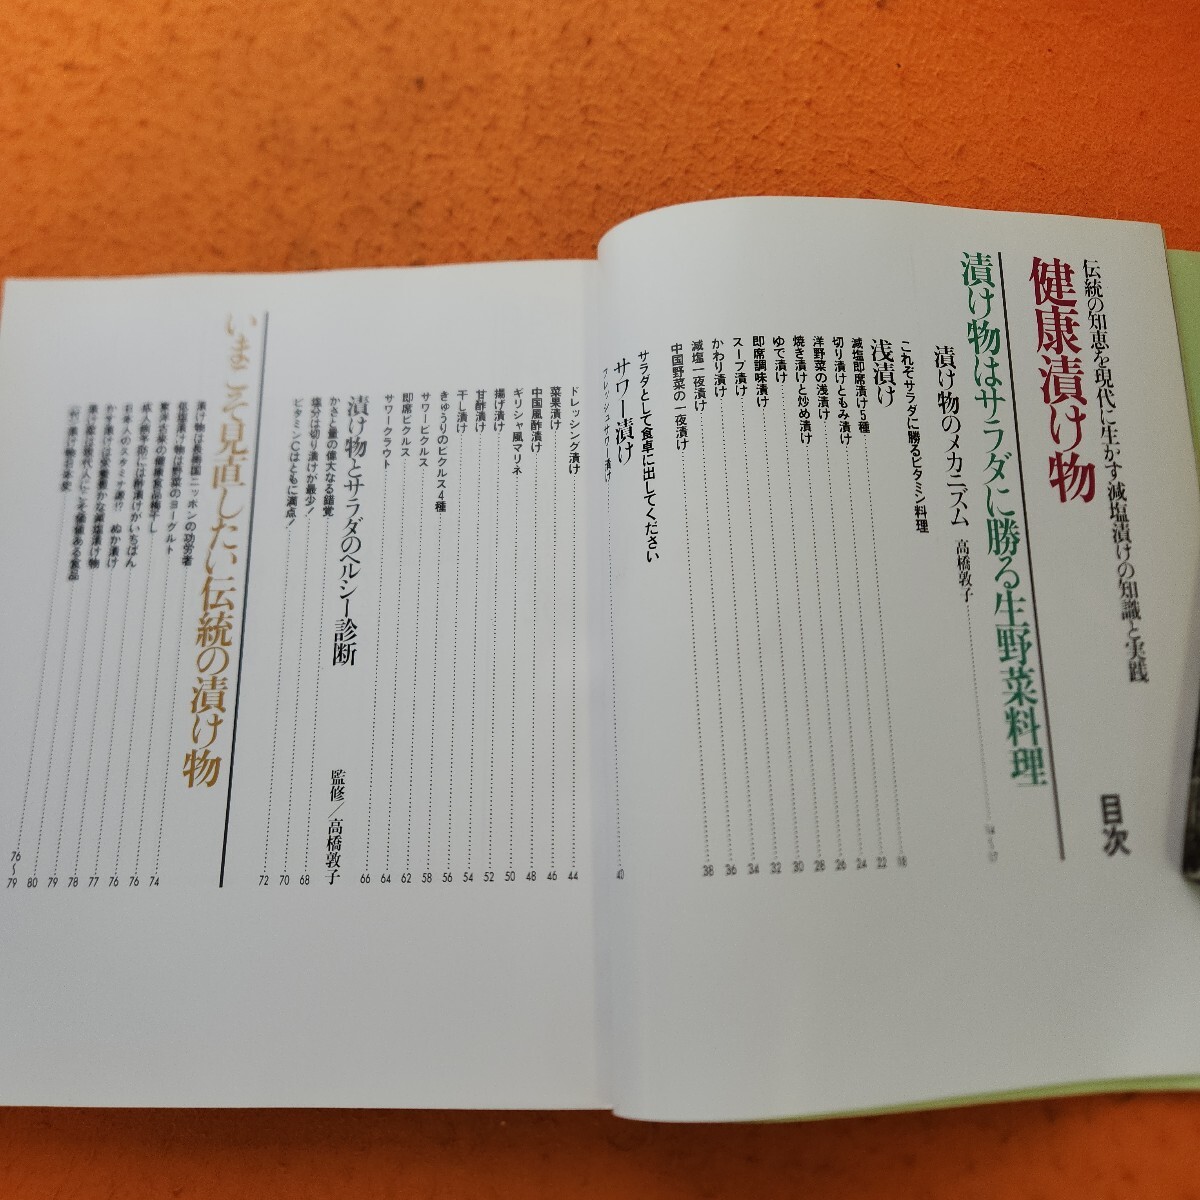 伝統の知恵を現代に生かす減塩漬けの知識と実践
健康漬け物
目次
漬け物はサラダに勝る生野菜料理
漬け物のメカニズム 高橋敦子
これぞサラダに勝るビタミン料理 18
浅漬け
減塩即席漬け5種 22
切り漬けともみ漬け 24
洋野菜の浅漬け 26
焼き漬けと炒め漬け 28
ゆで漬け 30
即席調味漬け 32
スープ漬け 34
かわり漬け 34
減塩一夜漬け 36
中国野菜の一夜漬け 38
サラダとして食卓に出してください
サワー漬け
フレッシュサワー漬け 40
ドレッシング漬け 44
菜果漬け 46
中国風酢漬け 48
ギリシャ風マリネ 50
揚げ漬け 52
甘酢漬け 54
干し漬け 56
きゅうりのピクルス4種 56
サワーピクルス 58
即席ピクルス 62
サワークラウト 64
66
漬け物とサラダのヘルシー診断
監修／高橋敦子
かさと量の偉大なる錯覚 68
塩分は切り漬けが最少！ 70
ビタミンCはともに満点！ 72
いまこそ見直したい伝統の漬け物
漬け物は長寿国ニッポンの功労者
低塩漬け物は野菜のヨーグルト
東洋古来の健康食品梅干し 74
成人病予防には酢漬けがいちばん 76
日本人のスタミナ源!? ぬか漬け 76
かす漬けは栄養豊かな減塩漬け物 77
78
79
80
76〜79